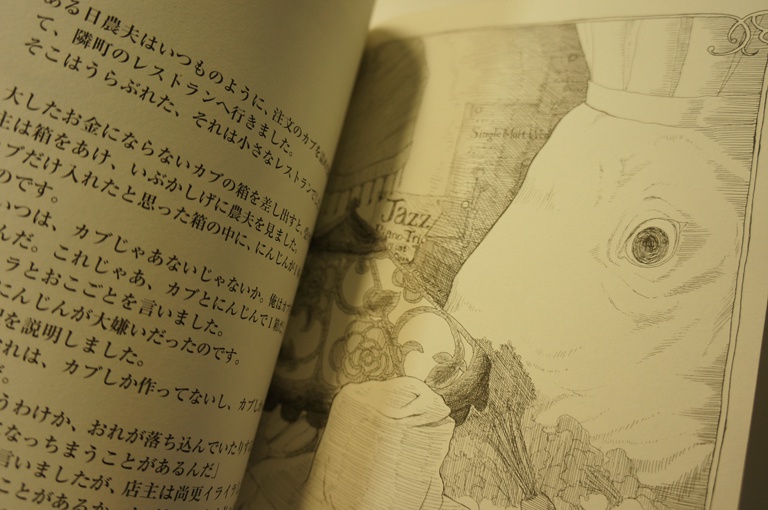 ある日農夫はいつものように、注文のカブを
て、隣町のレストランへ行きました。
そこはうらぶれた、それは小さなレストランで
大したお金にならないカブの箱を差し出すと、
主は箱をあけ、いぶかしげに農夫を見ました。
ブだけ入れたと思った箱の中に、にんじんが
のです。
いつは、カブじゃあないじゃないか。俺は
んだ。これじゃあ、カブとにんじんで
ラとおこごとを言いました。
にんじんが大嫌いだったのです。
を説明しました。
れは、カブしか作ってないし、カブし
うわけか、おれが落ち込んでいたり
なっちまうことがあるんだ」
言いましたが、店主は尚更イライ
ことがあるか
Single Malt
Jazz
Piano Trio